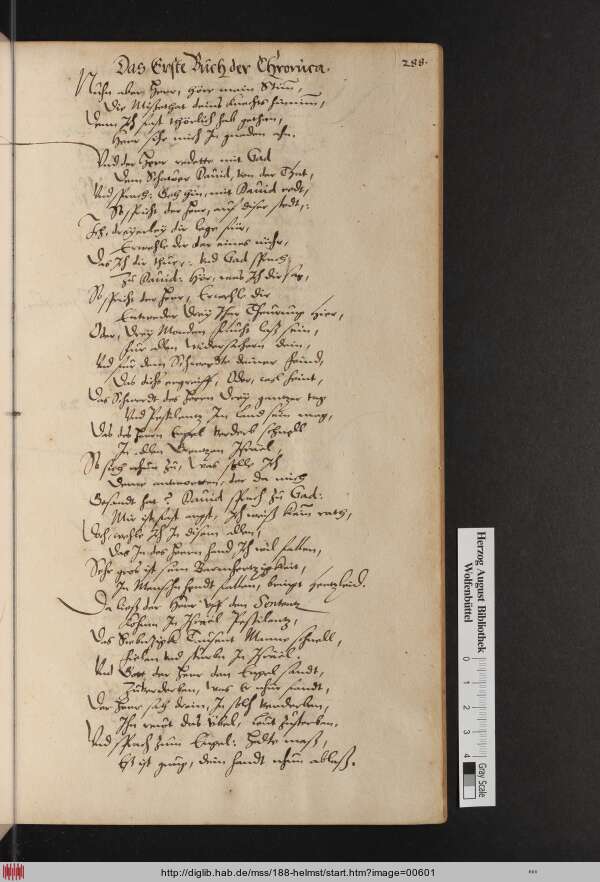 Das Erste Buch der Chronica.
288.
Nuhn aber Herr, hör mein Stim,
Die Missethat deins Knechts hinnim,
Denn Ich hab thörlich hab gethan,
Herr sihe mich In gnaden ahn.
Und der Herr redette mit Gad
Dem Schawer Dauid, von der That,
Und sprach: Geh hin, mit Dauid redt,
So spricht der Herr, auf diser stedt,:
Ich dreyerley dir lege für,
Erwehle dir der eines mihr,
Das Ich dir thue,: Und Gad sprach,
Zu Dauid: Hör, was Ich dir sag,
So spricht der Herr, Erwehl dir
Entweder Drey Jhar Theurung hier,
Oder, Drey Monden flucht laß sein,
Für allen Widersachern dein,
Und für dem Schwerdte deiner Feind,
Das dichs ergreiff, Oder,
Das Schwerdt des Herrn Drey gantzer tag
Und Pestilentz Im Land sein mag,
Das des Herrn Engel verderb schnell
In allen Grentzen Israel,
So sieh nhun zu, Was solle Ich
Deme antwortten, der da mich
Gesandt hat? Dauid sprach zu Gad:
Mir ist fast angst, Ich weiß kaum rath,
Doch, wehle Ich In disem allen,
Das In des Herrn hand Ich wil fallen,
Sehr groß ist sein Barmhertzigkeit,
In Menschn handt fallen, bringt hertzleid.
Da ließ der Herr uff dem
Kohmen In Israel Pestilentz,
Das Siebentzigk Tausent Manne schnell,
Fielen und sturben In Israel.
Und Gott der Herr den Engel sandt,
Zuverderben, was Er nhur fandt,
Der Herr sah drein, In solch verderben,
Ihn rewt das Übel,
Und sprach zum Engel: Halte maß,
Es ist gnug, dein handt nhun ablaß.
Herzog August Bibliothek
Wolfenbüttel
0 1 2 3 4
Gray Scale
http://diglib.hab.de/mss/188-helmst/start.htm?image=00601